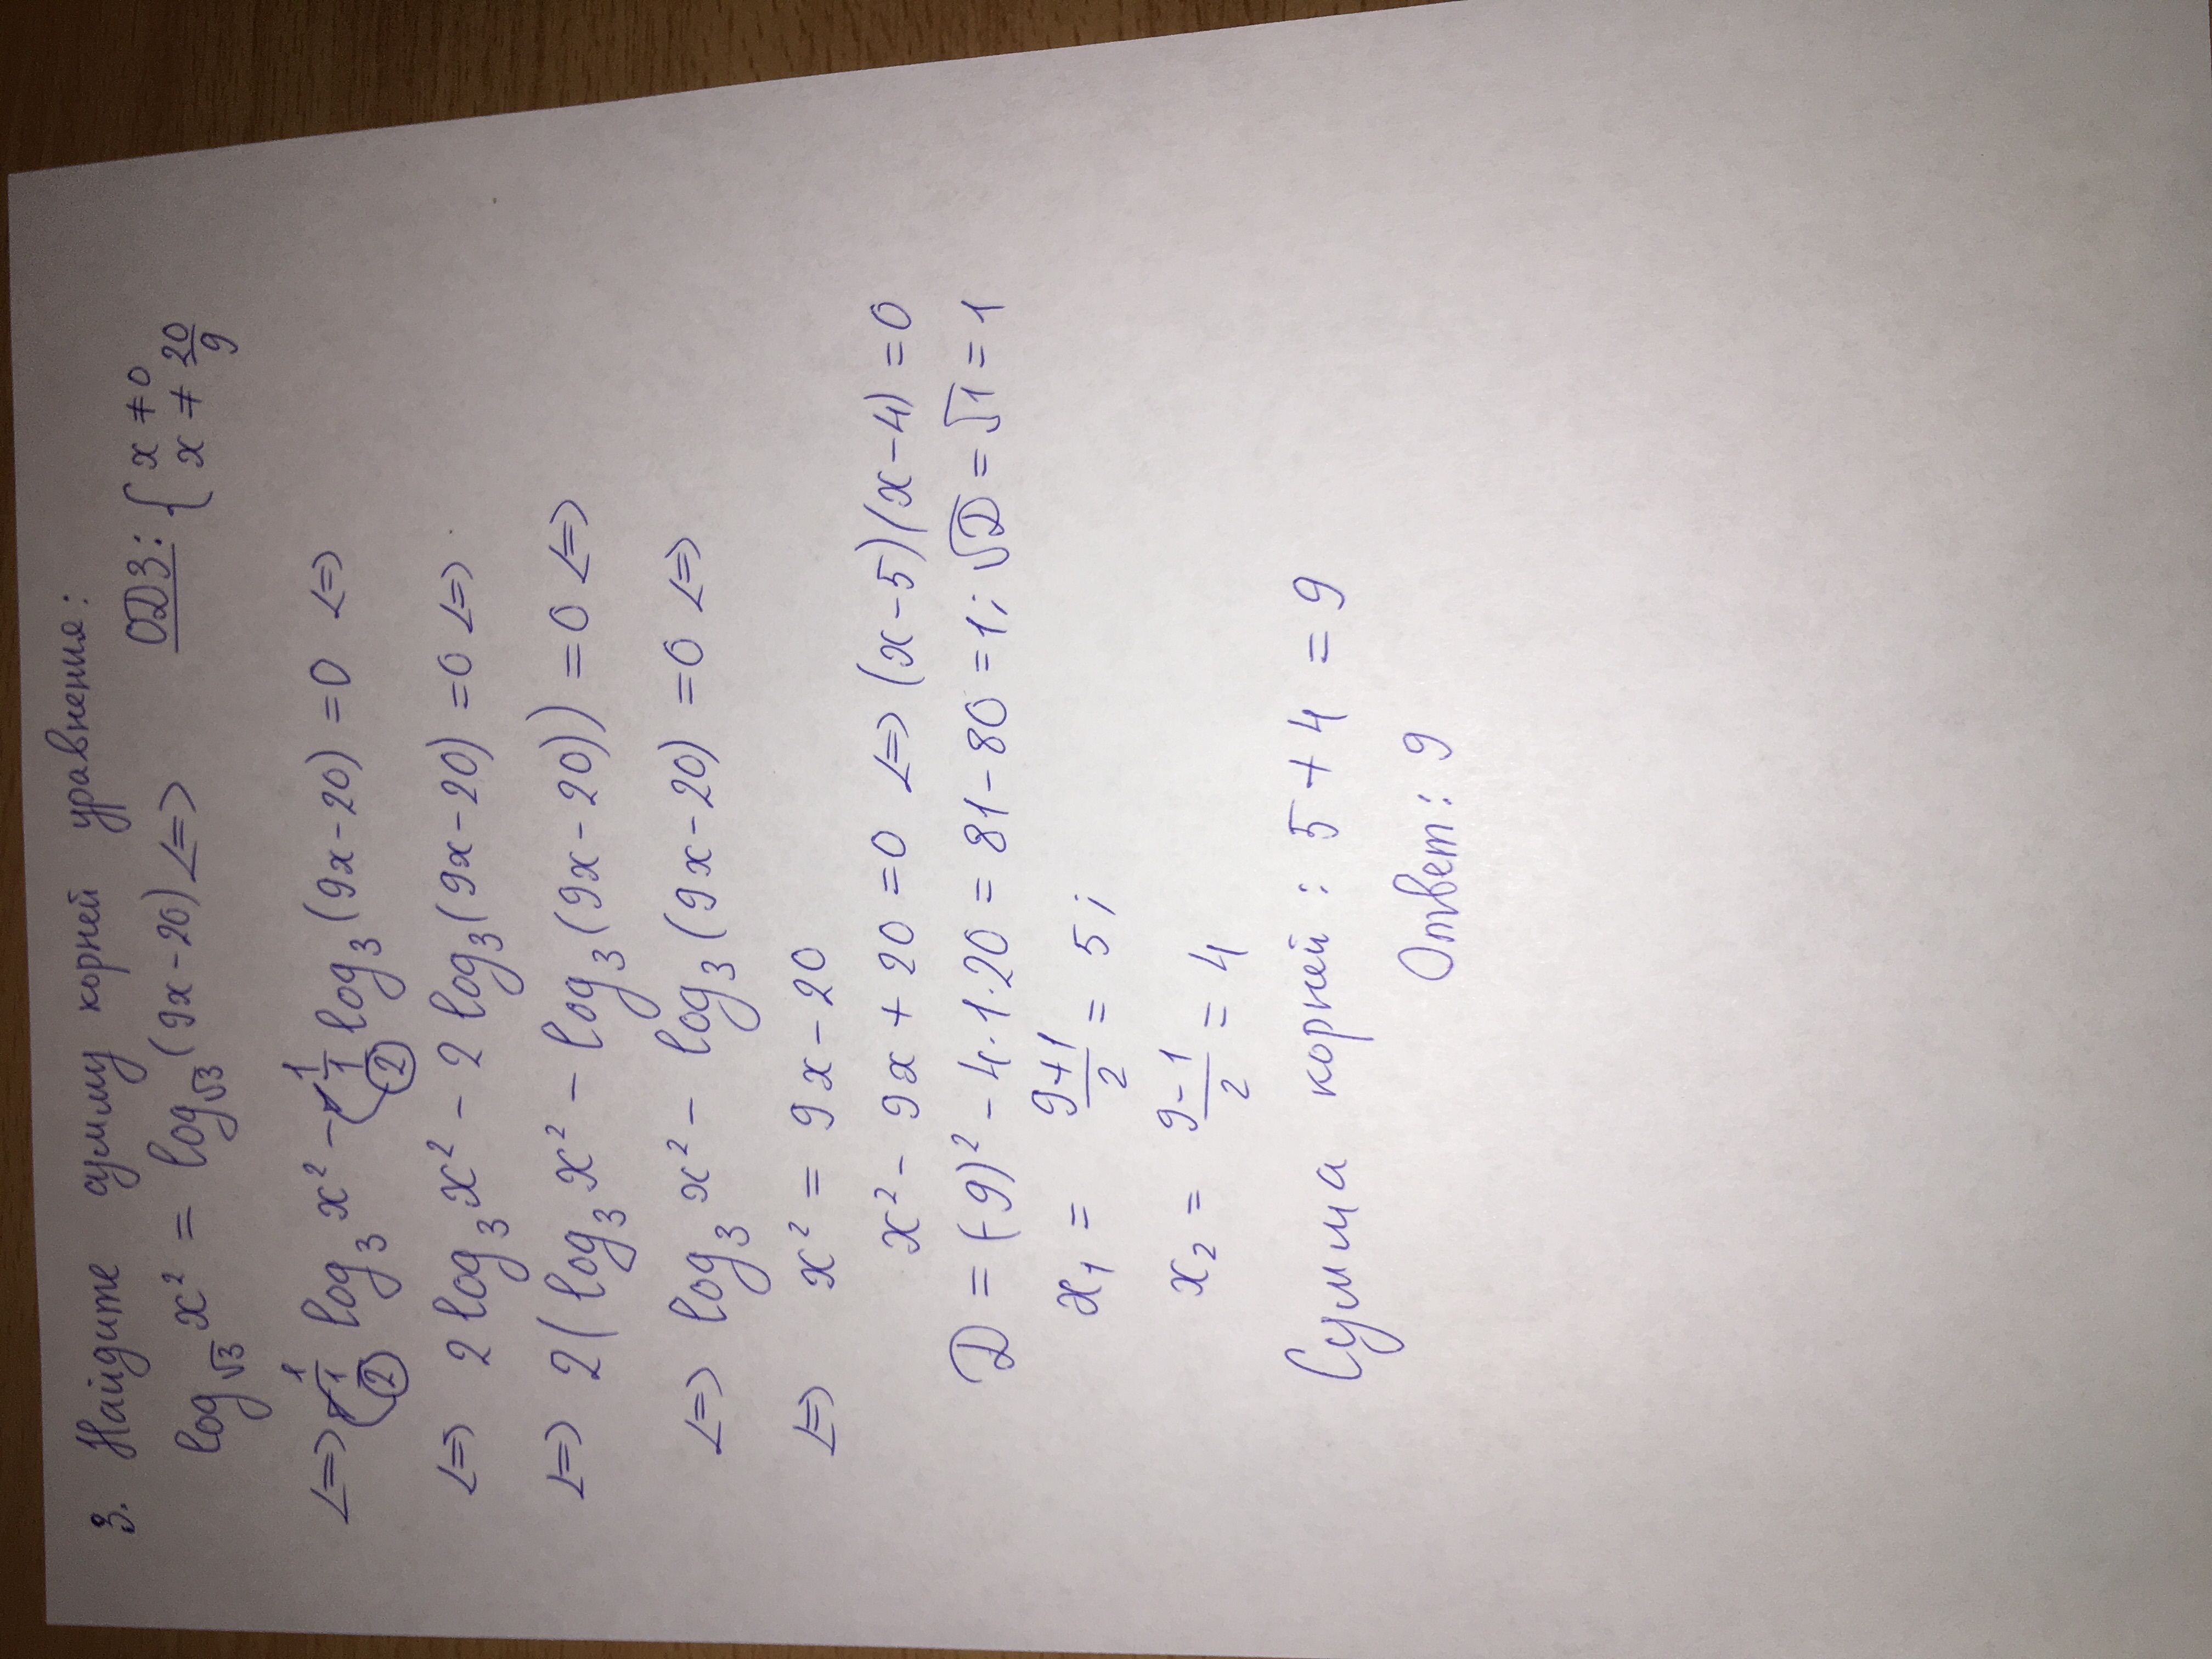 3. Найдите сумму корней уравнения:
log√3 x² = log√3 (9x-20) <=> ОДЗ: { x ≠ 0
x ≠ 20/9
<=> 1/(1/2) log₃ x² - 1/(1/2) log₃ (9x-20) = 0 <=>
<=> 2 log₃ x² - 2 log₃ (9x-20) = 0 <=>
<=> 2(log₃ x² - log₃ (9x-20)) = 0 <=>
<=> log₃ x² - log₃ (9x-20) = 0 <=>
<=> x² = 9x-20
x² - 9x + 20 = 0 <=> (x-5)(x-4) = 0
D = (-9)² - 4·1·20 = 81-80 = 1; √D = √1 = 1
x₁ = (9+1)/2 = 5;
x₂ = (9-1)/2 = 4
Сумма корней: 5+4 = 9
Ответ: 9